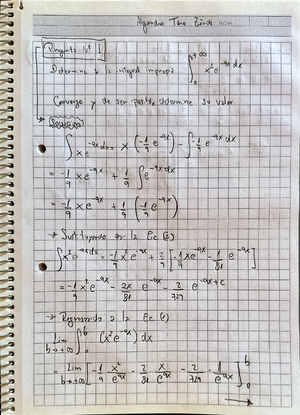 Pregunta Nº 1
Determine si la integral impropia ∫₀^{+∞} x² e^{-9x} dx
Converge y de ser posible determine su valor
Solución
∫ x e^{-9x} dx = x (-1/9 e^{-9x}) - ∫ -1/9 e^{-9x} dx
= -1/9 x e^{-9x} + 1/9 ∫ e^{-9x} dx
= -1/9 x e^{-9x} + 1/9 (-1/9 e^{-9x})
→ Sustituyendo en la Ec (2)
∫ x² e^{-9x} dx = -1/9 x² e^{-9x} + 2/9 [-1/9 x e^{-9x} - 1/81 e^{-9x}]
= -1/9 x² e^{-9x} - 2x/81 e^{-9x} - 2/729 e^{-9x} + c
→ Regresando a la Ec (1)
Lim b→+∞ ∫₀^b (x² e^{-9x}) dx
= Lim b→+∞ [-1/9 x²/e^{9x} - 2/81 x/e^{9x} - 2/729 · 1/e^{9x}]₀^b